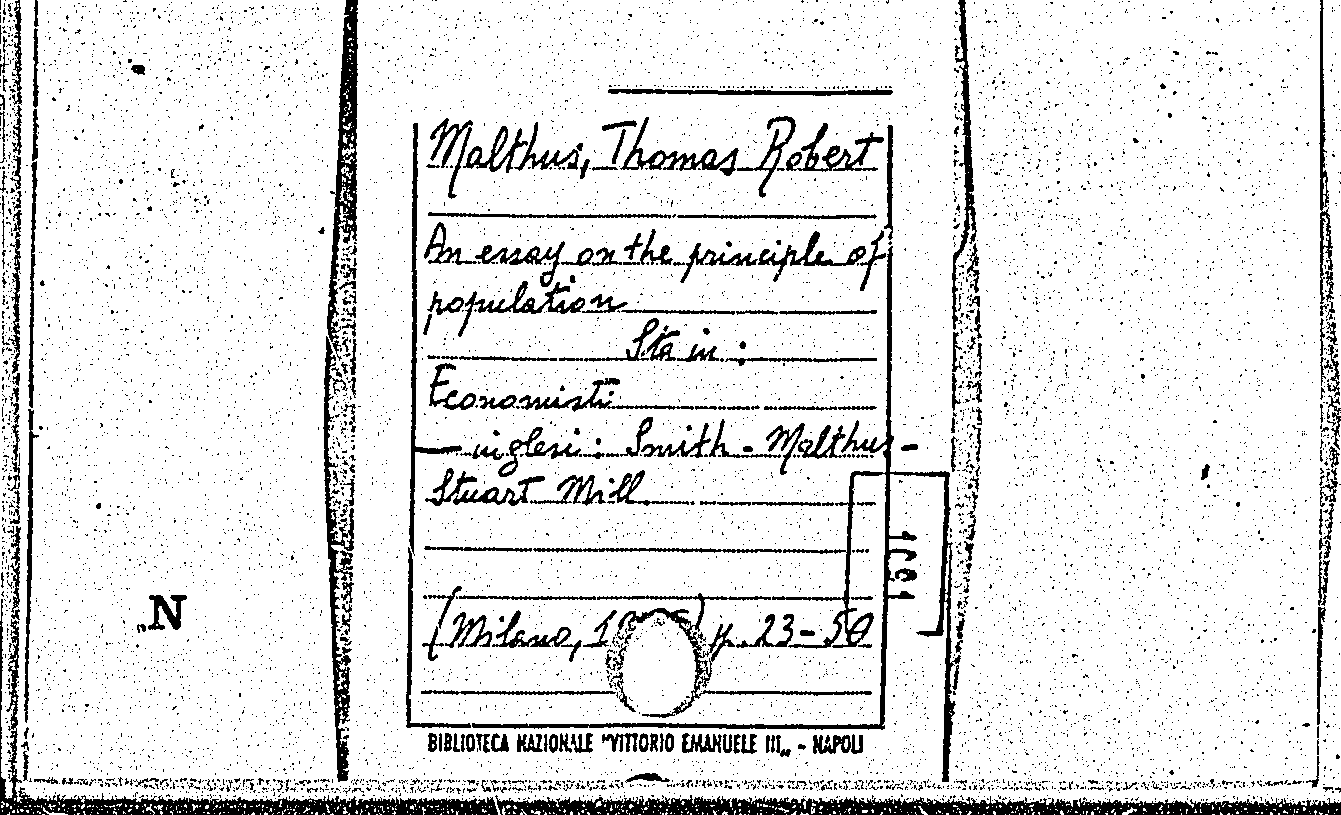 Malthus, Thomas Robert
An essay on the principle of
population
Sta in :
Economisti
— inglesi : Smith - Malthus -
Stuart Mill
(Milano, ) p. 23-50
BIBLIOTECA NAZIONALE "VITTORIO EMANUELE III„ - NAPOLI
„N